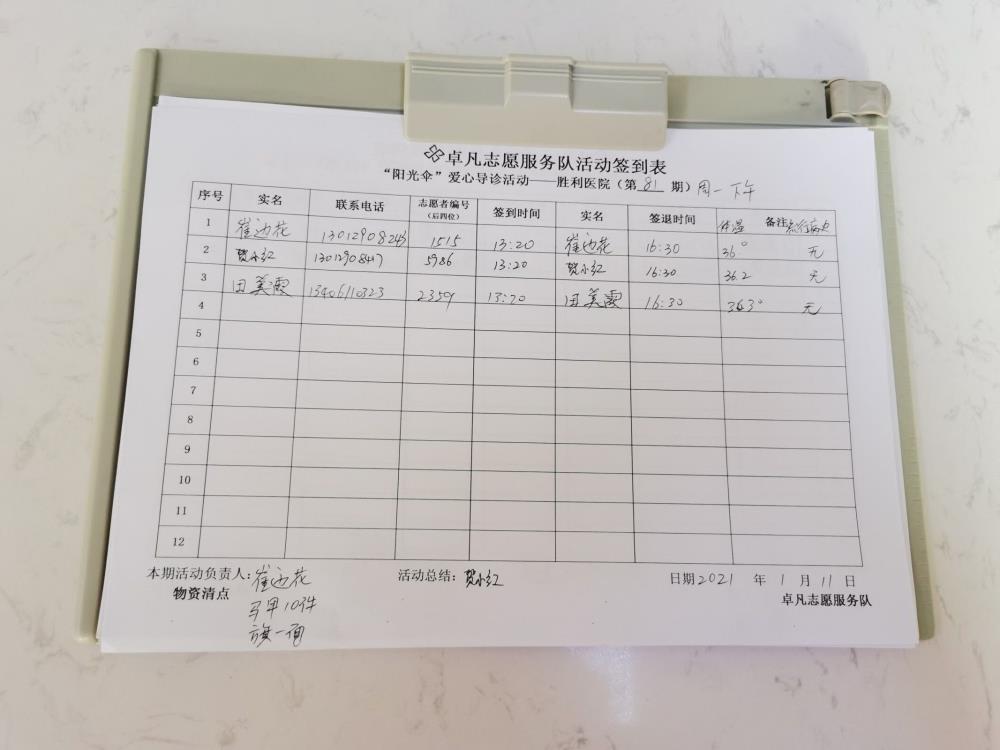 卓凡志愿服务队活动签到表
“阳光伞”爱心导诊活动——胜利医院（第81期）周一下午
序号 实名 联系电话 志愿者编号（后四位） 签到时间 实名 签退时间 体温 备注
1 崔迎花 1515 13:20 崔迎花 16:30 36° 无
2 贺小红 5986 13:20 贺小红 16:30 36.2 无
3 田美霞 13406110323 2359 13:20 田美霞 16:30 36.3° 无
4
5
6
7
8
9
10
11
12
本期活动负责人：崔迎花 活动总结：贺小红 日期2021年1月11日
物资清点 马甲10件 卓凡志愿服务队
旗一面